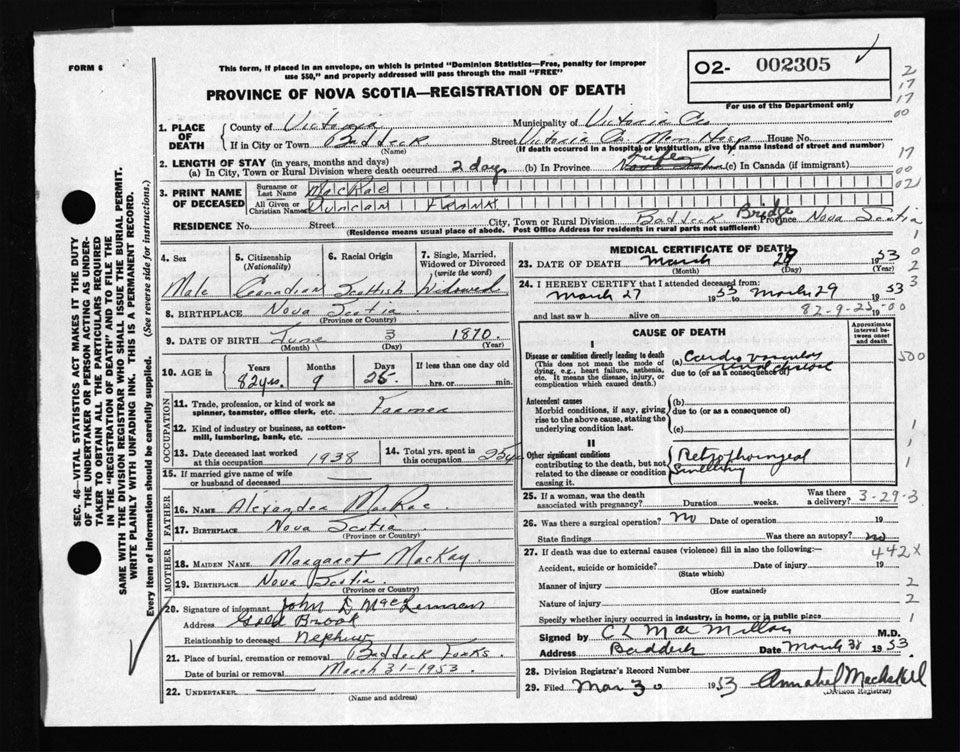 FORM 6
This form, if placed in an envelope, on which is printed "Dominion Statistics—Free, penalty for improper
use $50," and properly addressed will pass through the mail "FREE"
O2- 002305
For use of the Department only
PROVINCE OF NOVA SCOTIA—REGISTRATION OF DEATH
1. PLACE OF DEATH
County of Victoria Municipality of Victoria Co
If in City or Town Baddeck Street Victoria Co Mem Hosp House No.
(Name) (If death occurred in a hospital or institution, give the name instead of street and number)
2. LENGTH OF STAY (in years, months and days)
(a) In City, Town or Rural Division where death occurred 2 days (b) In Province life (c) In Canada (if immigrant)
3. PRINT NAME OF DECEASED
Surname or Last Name MacRae
All Given or Christian Names Duncan Frank
RESIDENCE No. Street City, Town or Rural Division Baddeck Bridge Province Nova Scotia
(Residence means usual place of abode. Post Office Address for residents in rural parts not sufficient)
4. Sex Male
5. Citizenship (Nationality) Canadian
6. Racial Origin Scottish
7. Single, Married, Widowed or Divorced (write the word) Widowed
8. BIRTHPLACE Nova Scotia
(Province or Country)
9. DATE OF BIRTH June 3 1870
(Month) (Day) (Year)
10. AGE in Years Months Days If less than one day
82 yrs. 9 25 hrs. or min.
OCCUPATION
11. Trade, profession, or kind of work as spinner, teamster, office clerk, etc. Farmer
12. Kind of industry or business, as cotton-mill, lumbering, bank, etc.
13. Date deceased last worked at this occupation 1938
14. Total yrs. spent in this occupation
15. If married give name of wife or husband of deceased
FATHER
16. Name Alexander MacRae
17. BIRTHPLACE Nova Scotia
(Province or Country)
MOTHER
18. MAIDEN NAME Margaret MacKay
19. BIRTHPLACE Nova Scotia
(Province or Country)
20. Signature of informant John D MacLennan
Address Gold Brook
Relationship to deceased Nephew
21. Place of burial, cremation or removal Baddeck Forks.
Date of burial or removal March 31-1953
22. UNDERTAKER
(Name and address)
MEDICAL CERTIFICATE OF DEATH
23. DATE OF DEATH March 29 1953
(Month) (Day) (Year)
24. I HEREBY CERTIFY that I attended deceased from:
March 27 1953 to March 29 1953
and last saw h alive on 19
82-9-25-00
CAUSE OF DEATH
Approximate interval between onset and death
I
Disease or condition directly leading to death
(This does not mean the mode of dying, e.g., heart failure, asthenia, etc. It means the disease, injury, or complication which caused death.)
(a) Cardio vascular
due to (or as a consequence of) renal disease
Antecedent causes
Morbid conditions, if any, giving rise to the above cause, stating the underlying condition last.
(b)
due to (or as a consequence of)
(c)
II
Other significant conditions
contributing to the death, but not related to the disease or condition causing it.
25. If a woman, was the death associated with pregnancy? Duration weeks. Was there a delivery?
3-29-3
26. Was there a surgical operation? no Date of operation 19
State findings Was there an autopsy? no
27. If death was due to external causes (violence) fill in also the following:—
442X
Accident, suicide or homicide? Date of injury 19
(State which)
Manner of injury
(How sustained)
Nature of injury
Specify whether injury occurred in industry, in home, or in public place
Signed by C L MacMillan M.D.
Address Baddeck Date March 30 1953.
28. Division Registrar's Record Number
29. Filed Mar 30 1953 Annabel MacAskill
(Division Registrar)
SEC. 46—VITAL STATISTICS ACT MAKES IT THE DUTY
OF THE UNDERTAKER OR PERSON ACTING AS UNDER-
TAKER TO OBTAIN ALL THE PARTICULARS REQUIRED
IN THE "REGISTRATION OF DEATH" AND TO FILE THE
SAME WITH THE DIVISION REGISTRAR WHO SHALL ISSUE THE BURIAL PERMIT.
WRITE PLAINLY WITH UNFADING INK. THIS IS A PERMANENT RECORD.
Every item of information should be carefully supplied. (See reverse side for instructions.)
2
17
17
00
17
00
02
1
0
2
3
500
1
1
1
2
2
1